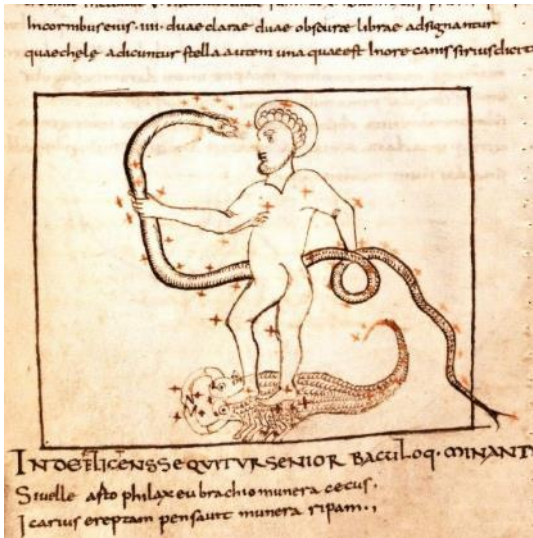 Incornibus eius · iiii · duae clarae duae obscurae librae adsignantur
quae chele dicuntur stella autem una quae est Inore canis sirius dicit
INDE FLICENS SEQVITVR SENIOR BACULOQ · MINANT
Siuelle asto philax eu brachio munera cecus ·
Icarius ereptam pensauit munera ripam · ,